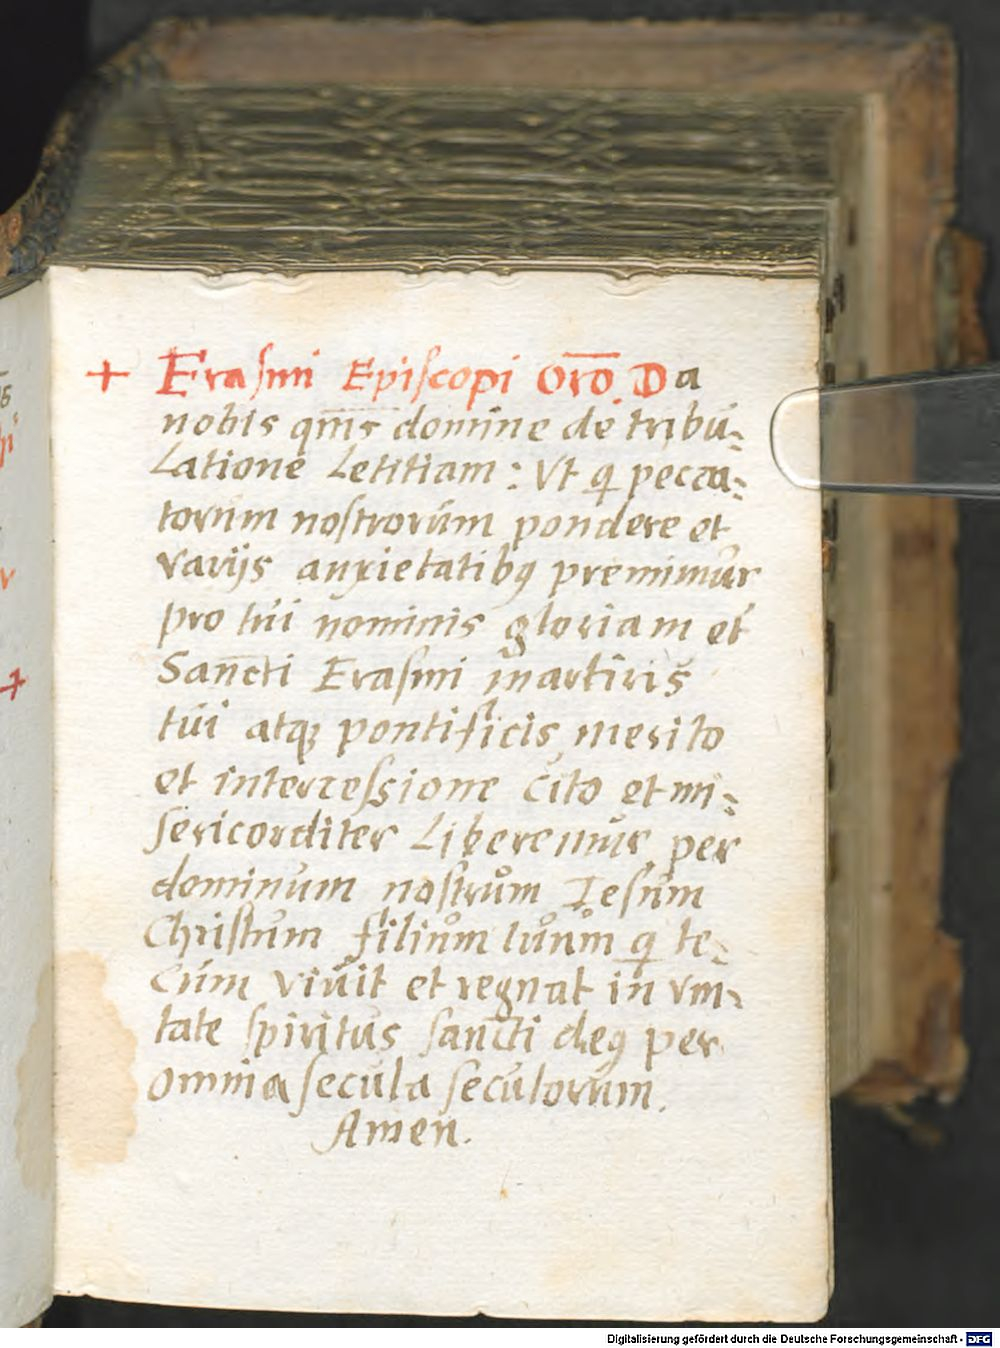 + Erasmi Episcopi Orõ. Da
nobis qm̃s domine de tribu=
Latione Letitiam: Vt q pecca=
torum nostrorum pondere et
varijs anxietatibq premimur
pro tui nominis gloriam et
Sancti Erasmi martiris
tui atq pontificis merito
et intercessione cito et mi=
sericorditer Liberemur per
dominum nostrum Iesum
Christum filium tuum q te=
cum viuit et regnat in vni=
tate spiritus sancti deq per
omnia secula seculorum.
Amen.
Digitalisierung gefördert durch die Deutsche Forschungsgemeinschaft - DFG